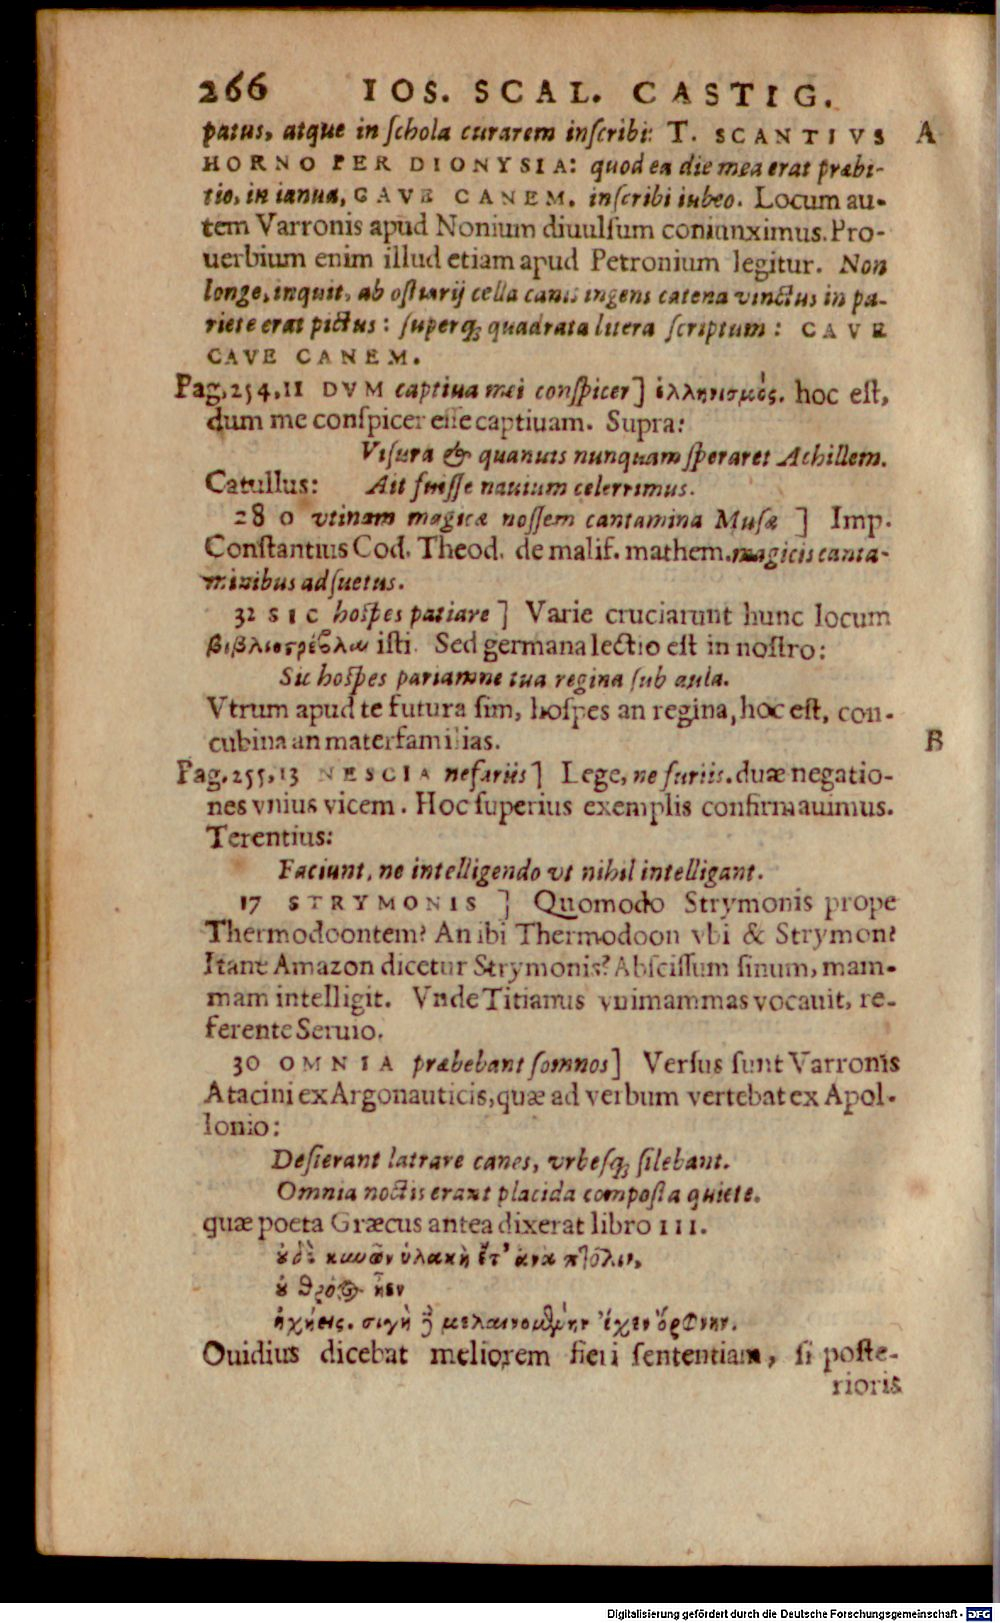 266 IOS. SCAL. CASTIG.
patus, atque in schola curarem inscribi: T. SCANTIVS A
HORNO PER DIONYSIA: quod ea die mea erat præbi-
tio, in ianua, CAVE CANEM. inscribi iubeo. Locum au-
tem Varronis apud Nonium diuulsum coniunximus. Pro-
uerbium enim illud etiam apud Petronium legitur. Non
longe, inquit, ab ostiarij cella canis ingens catena vinctus in pa-
riete erat pictus: superq; quadrata litera scriptum: CAVE
CAVE CANEM.
Pag. 254, 11 DVM captiua mei conspicer] ἑλληνισμός. hoc est,
dum me conspicer esse captiuam. Supra:
Visura & quamuis nunquam speraret Achillem.
Catullus: Ait fuisse nauium celerrimus.
28 O vtinam magicæ nossem cantamina Musæ ] Imp.
Constantius Cod. Theod. de malif. mathem. magicis canta-
minibus adsuetus.
32 SIC hospes patiare] Varie cruciarunt hunc locum
isti. Sed germana lectio est in nostro:
Sic hospes pariamne tua regina sub aula.
Vtrum apud te futura sim, hospes an regina, hoc est, con-
cubina an materfamilias. B
Pag. 255, 13 NESCIA nefariis] Lege, ne furiis. duæ negatio-
nes vnius vicem. Hoc superius exemplis confirmauimus.
Terentius:
Faciunt, ne intelligendo vt nihil intelligant.
17 STRYMONIS ] Quomodo Strymonis prope
Thermodoontem? An ibi Thermodoon vbi & Strymon?
Itane Amazon dicetur Strymonis? Abscissum sinum, mam-
mam intelligit. Vnde Titianus vnimammas vocauit, re-
ferente Seruio.
30 OMNIA præbebant somnos] Versus sunt Varronis
Atacini ex Argonauticis, quæ ad verbum vertebat ex Apol-
lonio:
Desierant latrare canes, vrbesq; silebant.
Omnia noctis erant placida composta quiete.
quæ poeta Græcus antea dixerat libro III.
οὐδὲ κυνῶν ὑλακὴ ἔτ' ἀνὰ πτόλιν,
οὐ θρόος ἦεν
ἠχήεις. σιγὴ δὲ μελαινομένην ἔχεν ὄρφνην.
Ouidius dicebat meliorem fieri sententiam, si poste-
rioris
Digitalisierung gefördert durch die Deutsche Forschungsgemeinschaft - DFG